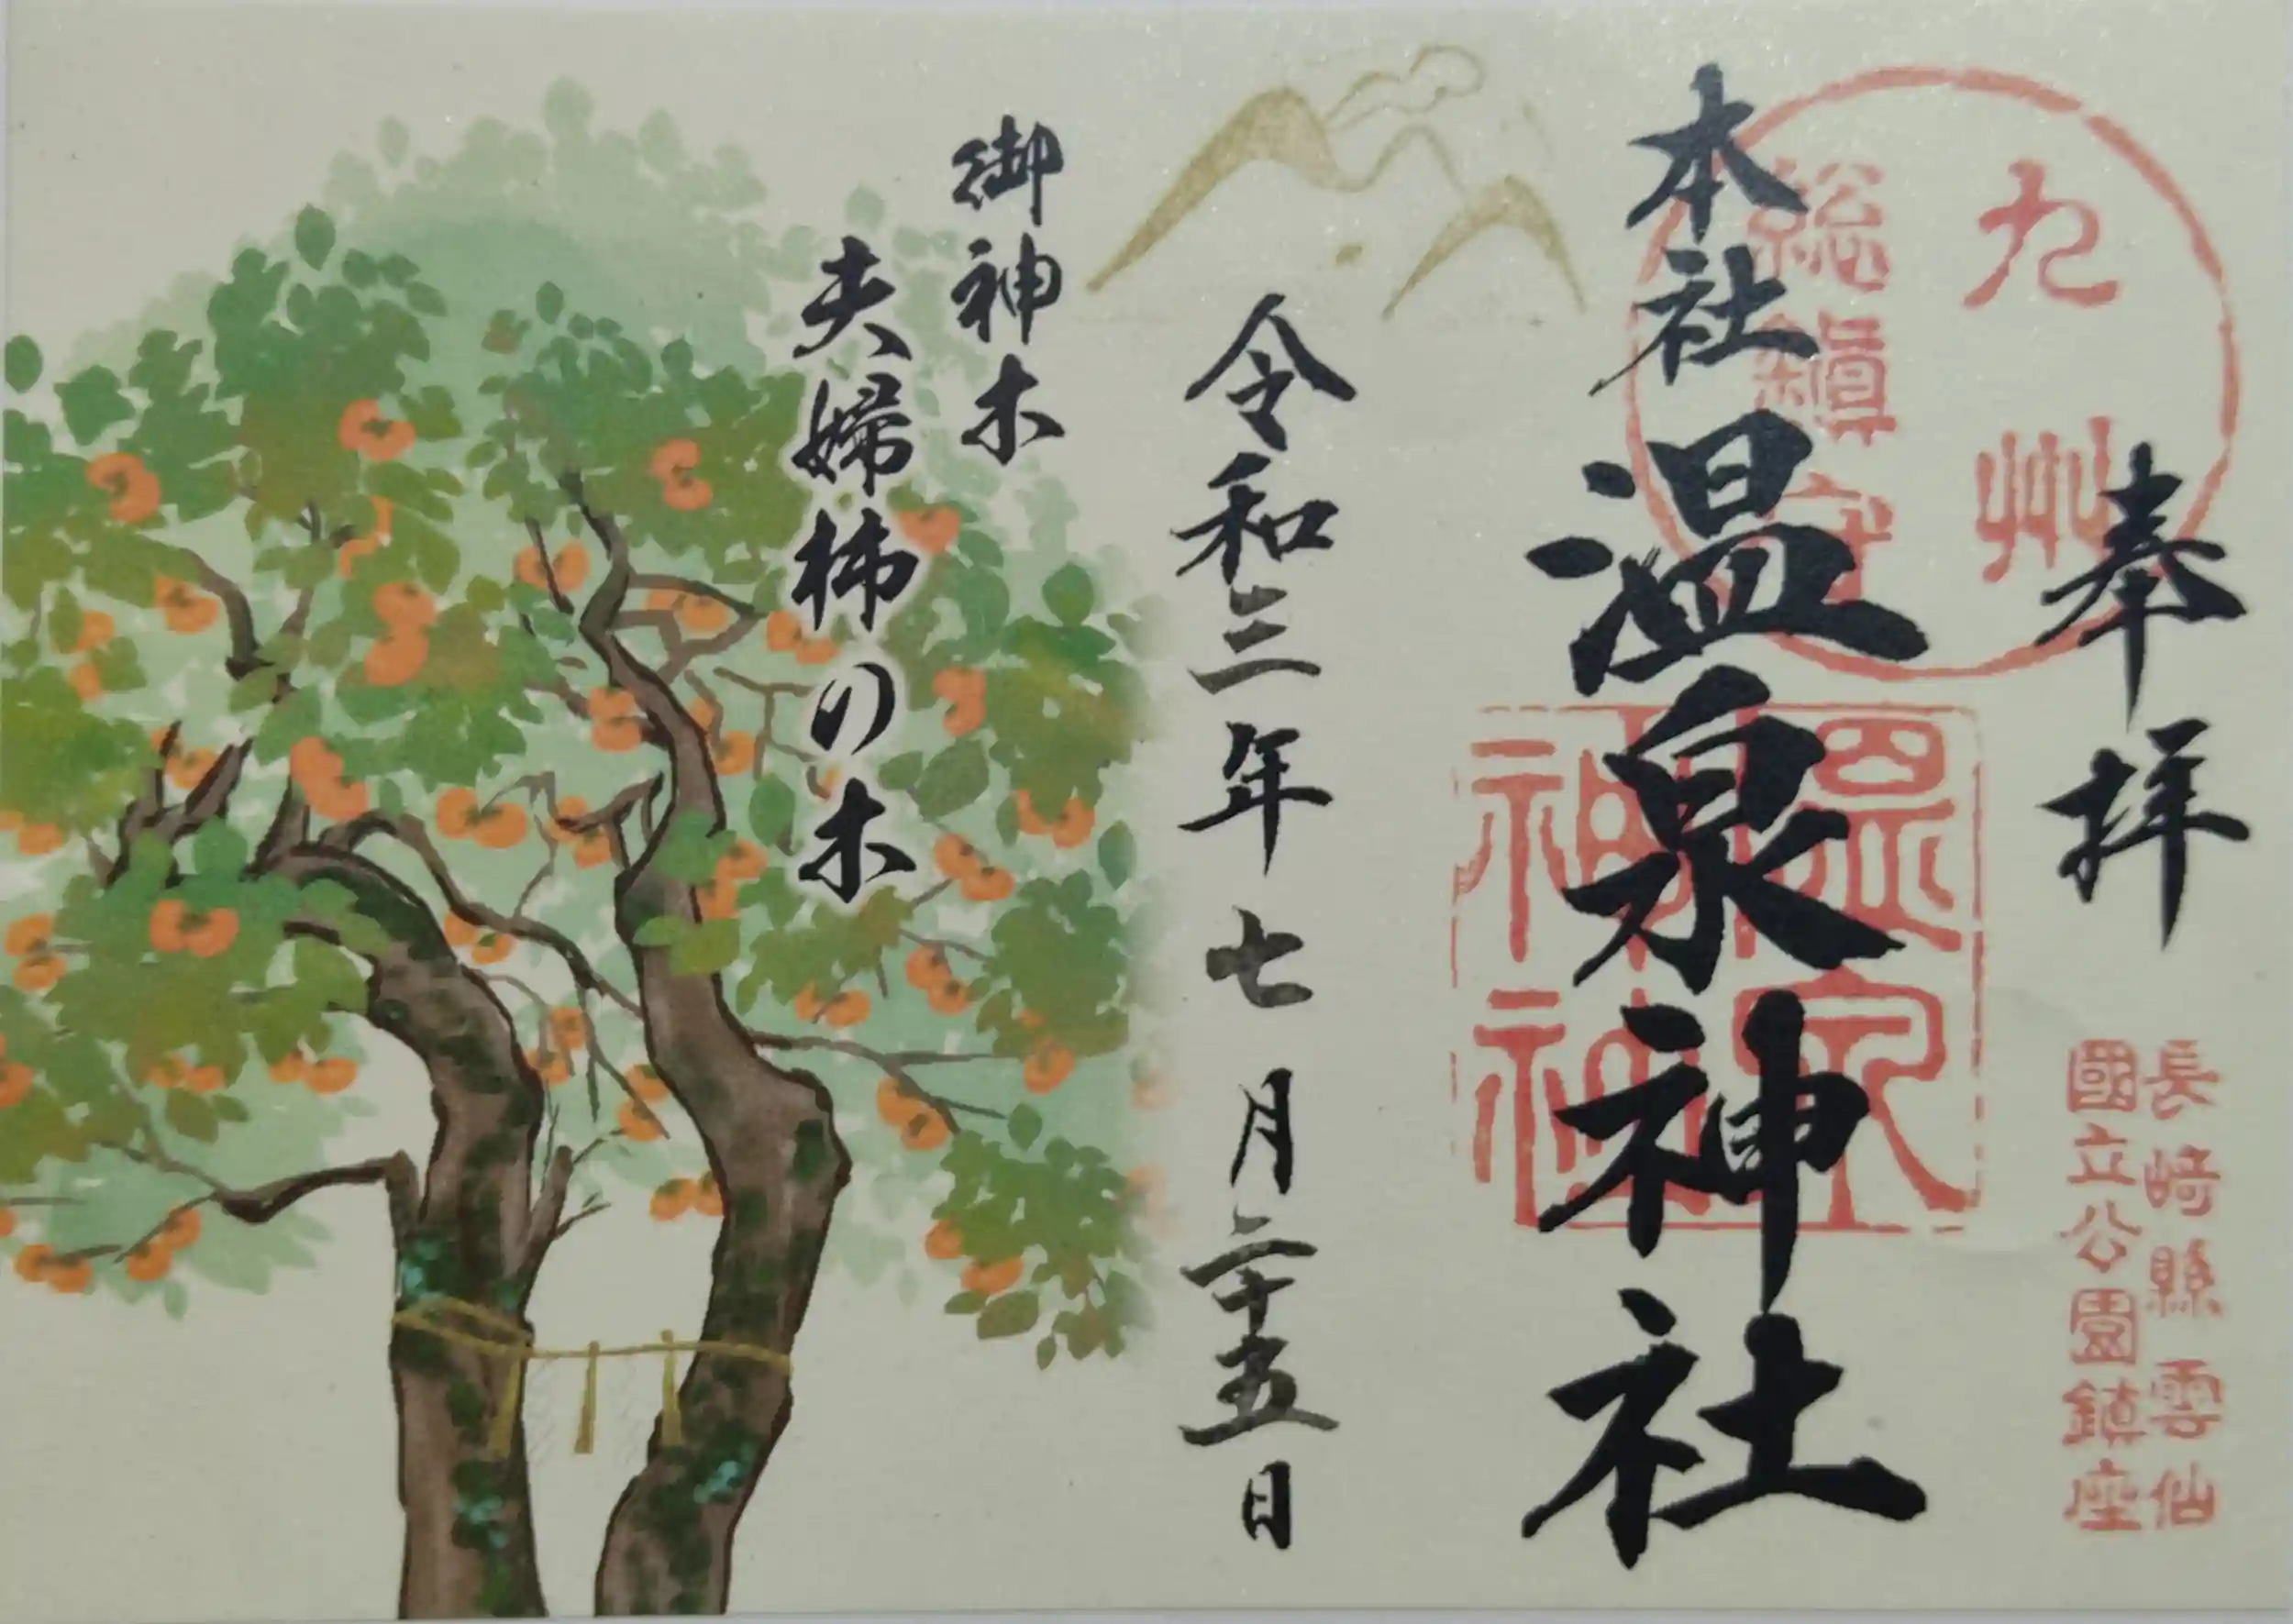 奉拝
長崎縣雲仙
國立公園鎮座
九州
総鎮守
本社温泉神社
温泉
神社
令和三年七月二十五日
御神木
夫婦柿の木